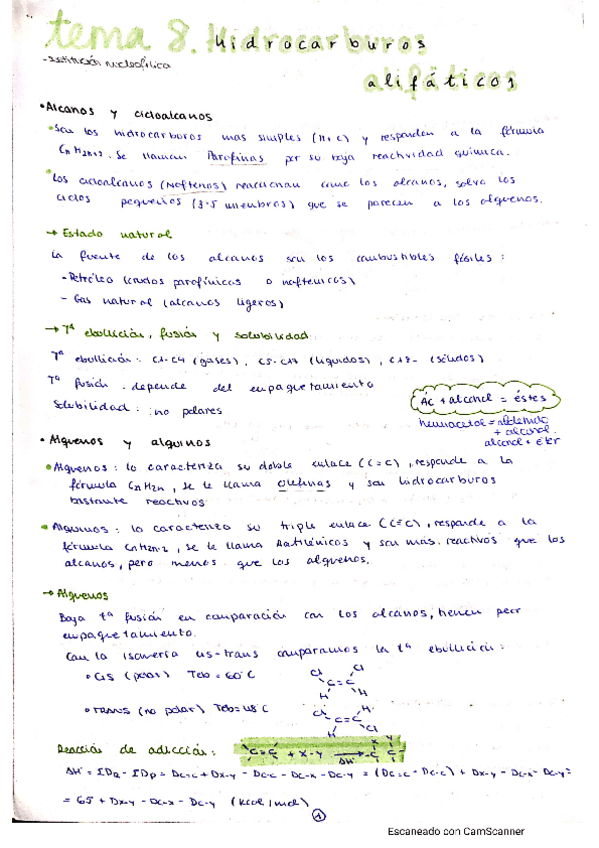 tema 8. Hidrocarburos
alifáticos
- Sustitución nucleofílica
• Alcanos y cicloalcanos
• Son los hidrocarburos mas simples (H+C) y responden a la fórmula
CnH2n+2. Se llaman Parafinas por su baja reactividad química.
• Los cicloalcanos (Naftenos) reaccionan como los alcanos, salvo los
ciclos pequeños (3-5 miembros) que se parecen a los alquenos.
→ Estado natural
La fuente de los alcanos son los combustibles fósiles:
- Petróleo (crudos parafínicos o nafténicos)
- Gas natural (alcanos ligeros)
→ Tª ebullición, fusión y solubilidad
Tª ebullición: C1-C4 (gases), C5-C17 (líquidos), C18- (sólidos)
Tª fusión: depende del empaquetamiento
Solubilidad: no polares
Ác + alcohol = éstes
hemiacetal = aldehido
+ alcohol.
alcohol + éter
• Alquenos y alquinos
• Alquenos: lo caracteriza su doble enlace (C=C), responde a la
fórmula CnH2n, se le llama olefinas y son hidrocarburos
bastante reactivos
• Alquinos: lo caracteriza su triple enlace (C≡C), responde a la
fórmula CnH2n-2, se le llama Acetilénicos y son más reactivos que los
alcanos, pero menos que los alquenos.
→ Alquenos
Baja tª fusión en comparación con los alcanos, tienen peor
empaquetamiento.
Con la isomería cis-trans comparamos la tª ebullición:
• CIS (polar) Teb = 60°C
Cl Cl
C=C
H H
• TRANS (no polar) Teb = 48°C
Cl H
C=C
H Cl
Reacción de adicción: C=C + X-Y → C-C
X Y
ΔH
ΔH = ΣDR - ΣDP = DC=C + DX-Y - DC-C - DC-X - DC-Y = (DC=C - DC-C) + DX-Y - DC-X - DC-Y =
= 65 + DX-Y - DC-X - DC-Y (kcal/mol)
1
Escaneado con CamScanner